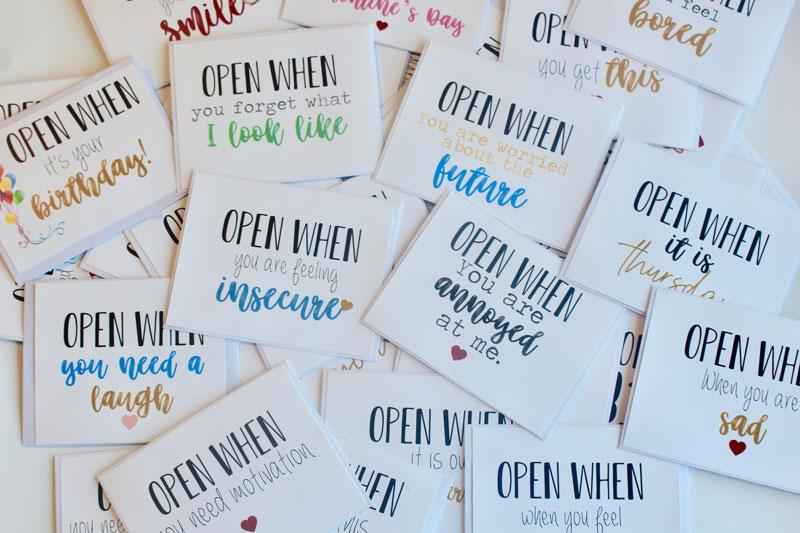 smile
Valentine's Day
OPEN WHEN
you feel
bored
OPEN WHEN
you get this
OPEN WHEN
it's your
birthday!
OPEN WHEN
you forget what
I look like
OPEN WHEN
You are worried
about the
future
OPEN WHEN
it is
thursday
OPEN WHEN
you are feeling
insecure
OPEN WHEN
you are
annoyed
at me.
OPEN WHEN
you need a
laugh
OPEN WHEN
When you are
sad
OPEN WHEN
you need motivation
OPEN WHEN
it is
OPEN WHEN
when you feel
WHEN
this